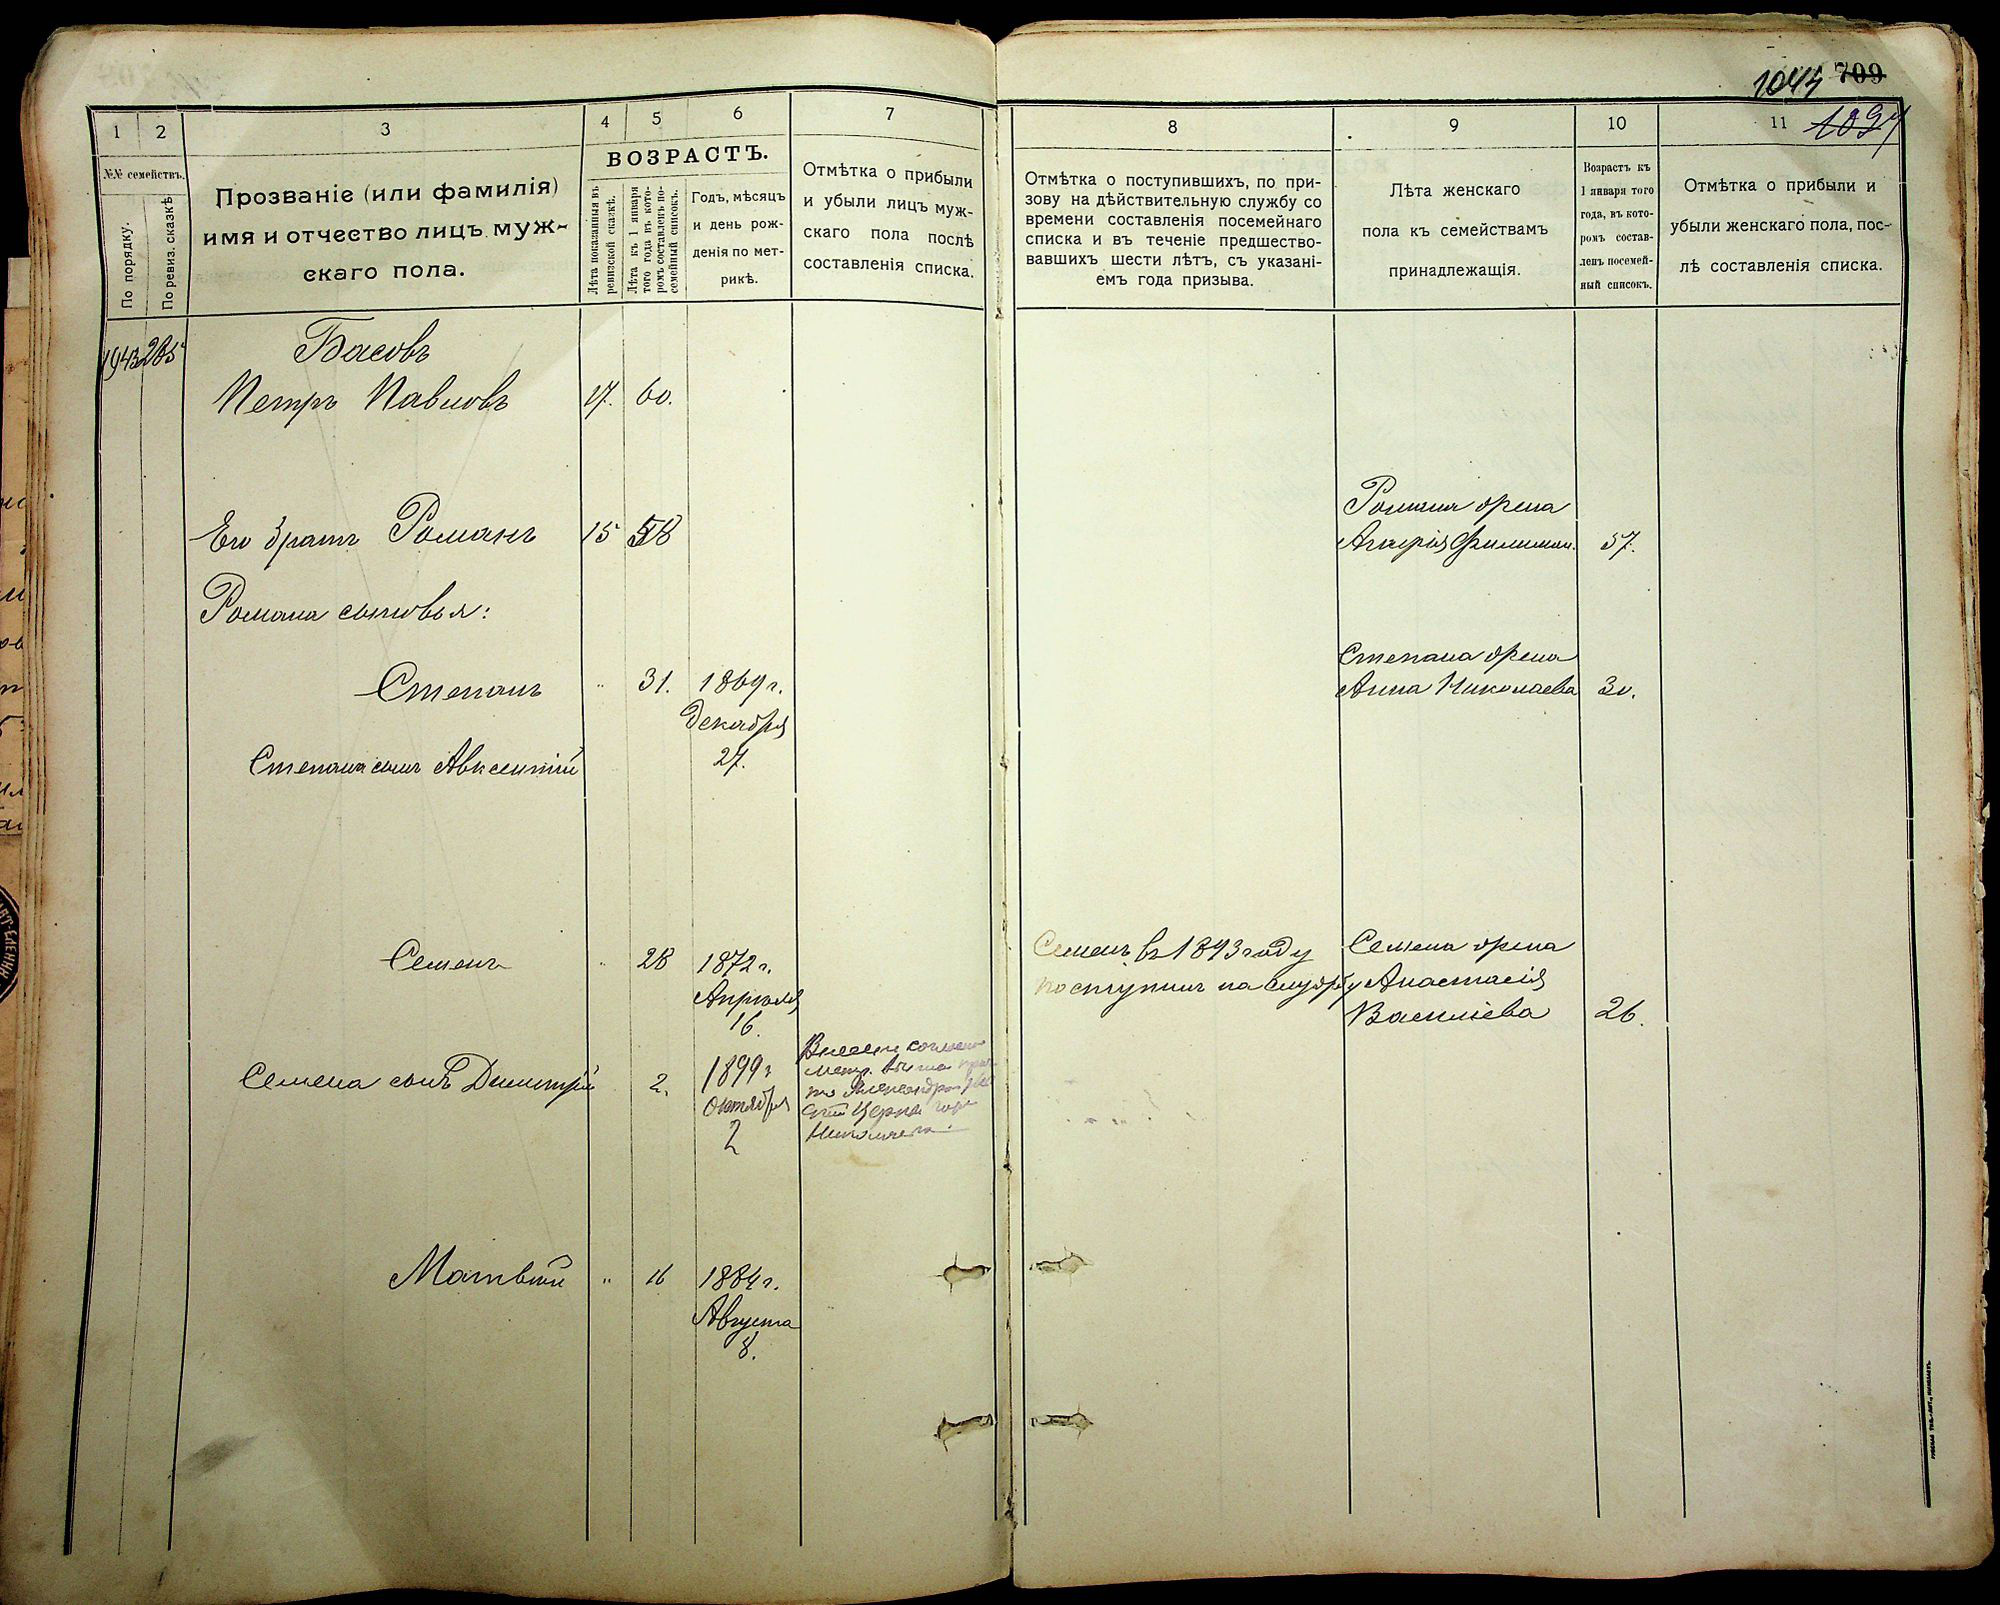 1044 709
1 2 3 4 5 6 7
8 9 10 11 1027
№№ семействъ.
По порядку.
По ревиз. сказкѣ.
Прозваніе (или фамилія)
имя и отчество лицъ муж-
скаго пола.
ВОЗРАСТЪ.
Лѣта показанныя въ
ревизской сказкѣ.
Лѣта къ 1 января
того года въ кото-
ромъ составленъ по-
семейный списокъ.
Годъ, мѣсяцъ
и день рож-
денія по мет-
рикѣ.
Отмѣтка о прибыли
и убыли лицъ муж-
скаго пола послѣ
составленія списка.
Отмѣтка о поступившихъ, по при-
зову на дѣйствительную службу со
времени составленія посемейнаго
списка и въ теченіе предшество-
вавшихъ шести лѣтъ, съ указані-
емъ года призыва.
Лѣта женскаго
пола къ семействамъ
принадлежащія.
Возрастъ къ
1 января того
года, въ кото-
ромъ состав-
ленъ посемей-
ный списокъ.
Отмѣтка о прибыли и
убыли женскаго пола, пос-
лѣ составленія списка.
1943 285 Басовъ
Петръ Павловъ 17. 60.
Романа жена
Его братъ Романъ 15 58 Агафія Филимон. 57.
Романа сыновья:
Степана жена
Степанъ " 31. 1869 г. Анна Николаева 30.
Декабря
27.
Степана сынъ Авксентій
Семенъ " 28 1872 г. Семенъ въ 1893 году Семена жена
Апрѣля поступилъ на службу Анастасія
16. Василіева 26.
Внесенъ согласно
Семена сынъ Димитрій 2. 1899 г метр.
Октября
2
Церкви гор.
Николаева.
Матвѣй " 16 1884 г.
Августа
8.